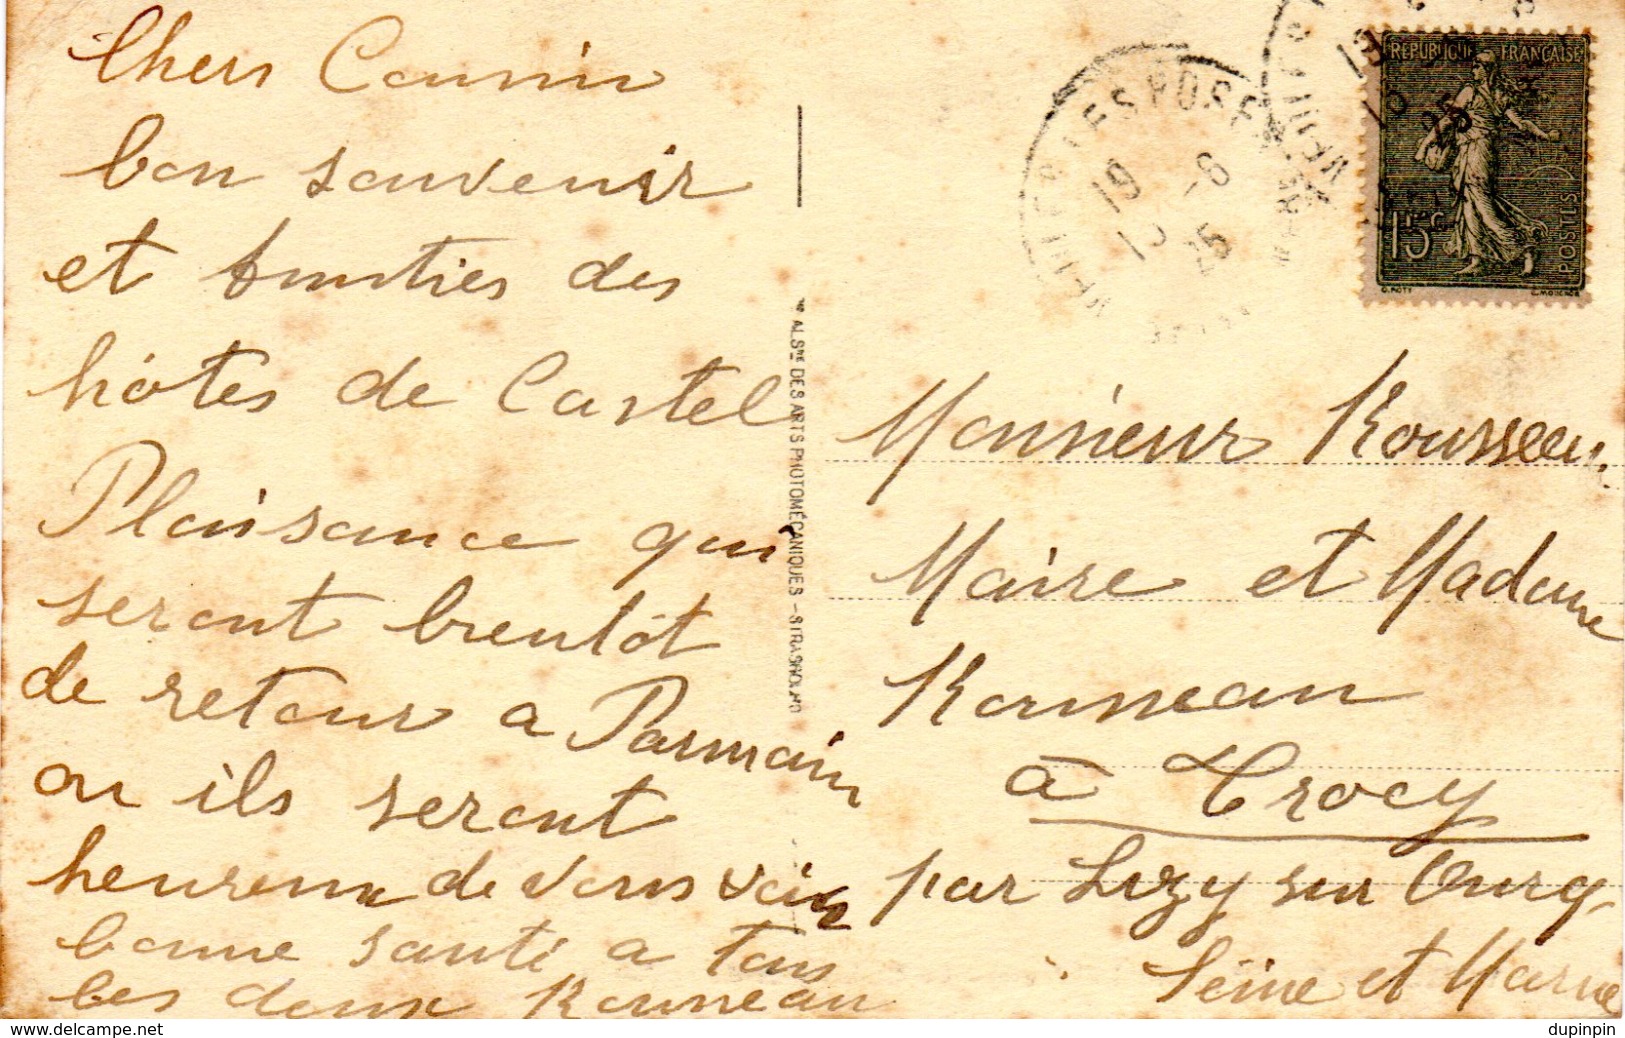 Chers Cousins
bon souvenir
et amitiés des
hôtes de Castel
Plaisance qui
seront bientôt
de retour a Parmain
ou ils seront
heureux de vous voir
bonne santé a tous
Les deux Rousseau
ALSne DES ARTS PHOTOMÉCANIQUES - STRASBOURG
VERRIERES POSE
19
-8
25
REPUBLIQUE FRANÇAISE
15c
POSTES
O. ROTY
E. MOUCHON
Monsieur Rousseau
Maire et Madame
Rousseau
à Trocy
par Lizy sur Ourcq
Seine et Marne
delcampe.net
dupinpin